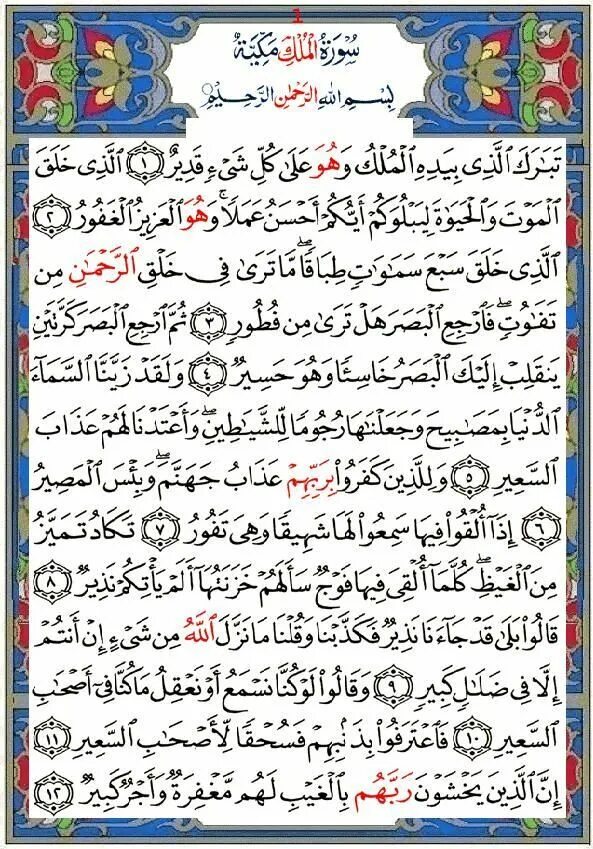 1
سُورَةُ الْمُلْكِ مَكِّيَّةٌ
بِسْمِ اللهِ الرَّحْمٰنِ الرَّحِيْمِ
تَبَارَكَ ٱلَّذِى بِيَدِهِ ٱلْمُلْكُ وَهُوَ عَلَىٰ كُلِّ شَىْءٍ قَدِيرٌ ﴿١﴾ ٱلَّذِى خَلَقَ
ٱلْمَوْتَ وَٱلْحَيَوٰةَ لِيَبْلُوَكُمْ أَيُّكُمْ أَحْسَنُ عَمَلًا ۚ وَهُوَ ٱلْعَزِيزُ ٱلْغَفُورُ ﴿٢﴾
ٱلَّذِى خَلَقَ سَبْعَ سَمَـٰوَٰتٍ طِبَاقًا ۖ مَّا تَرَىٰ فِى خَلْقِ ٱلرَّحْمَـٰنِ مِن
تَفَـٰوُتٍ ۖ فَٱرْجِعِ ٱلْبَصَرَ هَلْ تَرَىٰ مِن فُطُورٍ ﴿٣﴾ ثُمَّ ٱرْجِعِ ٱلْبَصَرَ كَرَّتَيْنِ
يَنقَلِبْ إِلَيْكَ ٱلْبَصَرُ خَاسِئًا وَهُوَ حَسِيرٌ ﴿٤﴾ وَلَقَدْ زَيَّنَّا ٱلسَّمَآءَ
ٱلدُّنْيَا بِمَصَـٰبِيحَ وَجَعَلْنَـٰهَا رُجُومًا لِّلشَّيَـٰطِينِ ۖ وَأَعْتَدْنَا لَهُمْ عَذَابَ
ٱلسَّعِيرِ ﴿٥﴾ وَلِلَّذِينَ كَفَرُوا۟ بِرَبِّهِمْ عَذَابُ جَهَنَّمَ ۖ وَبِئْسَ ٱلْمَصِيرُ
﴿٦﴾ إِذَآ أُلْقُوا۟ فِيهَا سَمِعُوا۟ لَهَا شَهِيقًا وَهِىَ تَفُورُ ﴿٧﴾ تَكَادُ تَمَيَّزُ
مِنَ ٱلْغَيْظِ ۖ كُلَّمَآ أُلْقِىَ فِيهَا فَوْجٌ سَأَلَهُمْ خَزَنَتُهَآ أَلَمْ يَأْتِكُمْ نَذِيرٌ ﴿٨﴾
قَالُوا۟ بَلَىٰ قَدْ جَآءَنَا نَذِيرٌ فَكَذَّبْنَا وَقُلْنَا مَا نَزَّلَ ٱللَّهُ مِن شَىْءٍ إِنْ أَنتُمْ
إِلَّا فِى ضَلَـٰلٍ كَبِيرٍ ﴿٩﴾ وَقَالُوا۟ لَوْ كُنَّا نَسْمَعُ أَوْ نَعْقِلُ مَا كُنَّا فِىٓ أَصْحَـٰبِ
ٱلسَّعِيرِ ﴿١٠﴾ فَٱعْتَرَفُوا۟ بِذَنۢبِهِمْ فَسُحْقًا لِّأَصْحَـٰبِ ٱلسَّعِيرِ ﴿١١﴾
إِنَّ ٱلَّذِينَ يَخْشَوْنَ رَبَّهُم بِٱلْغَيْبِ لَهُم مَّغْفِرَةٌ وَأَجْرٌ كَبِيرٌ ﴿١٢﴾